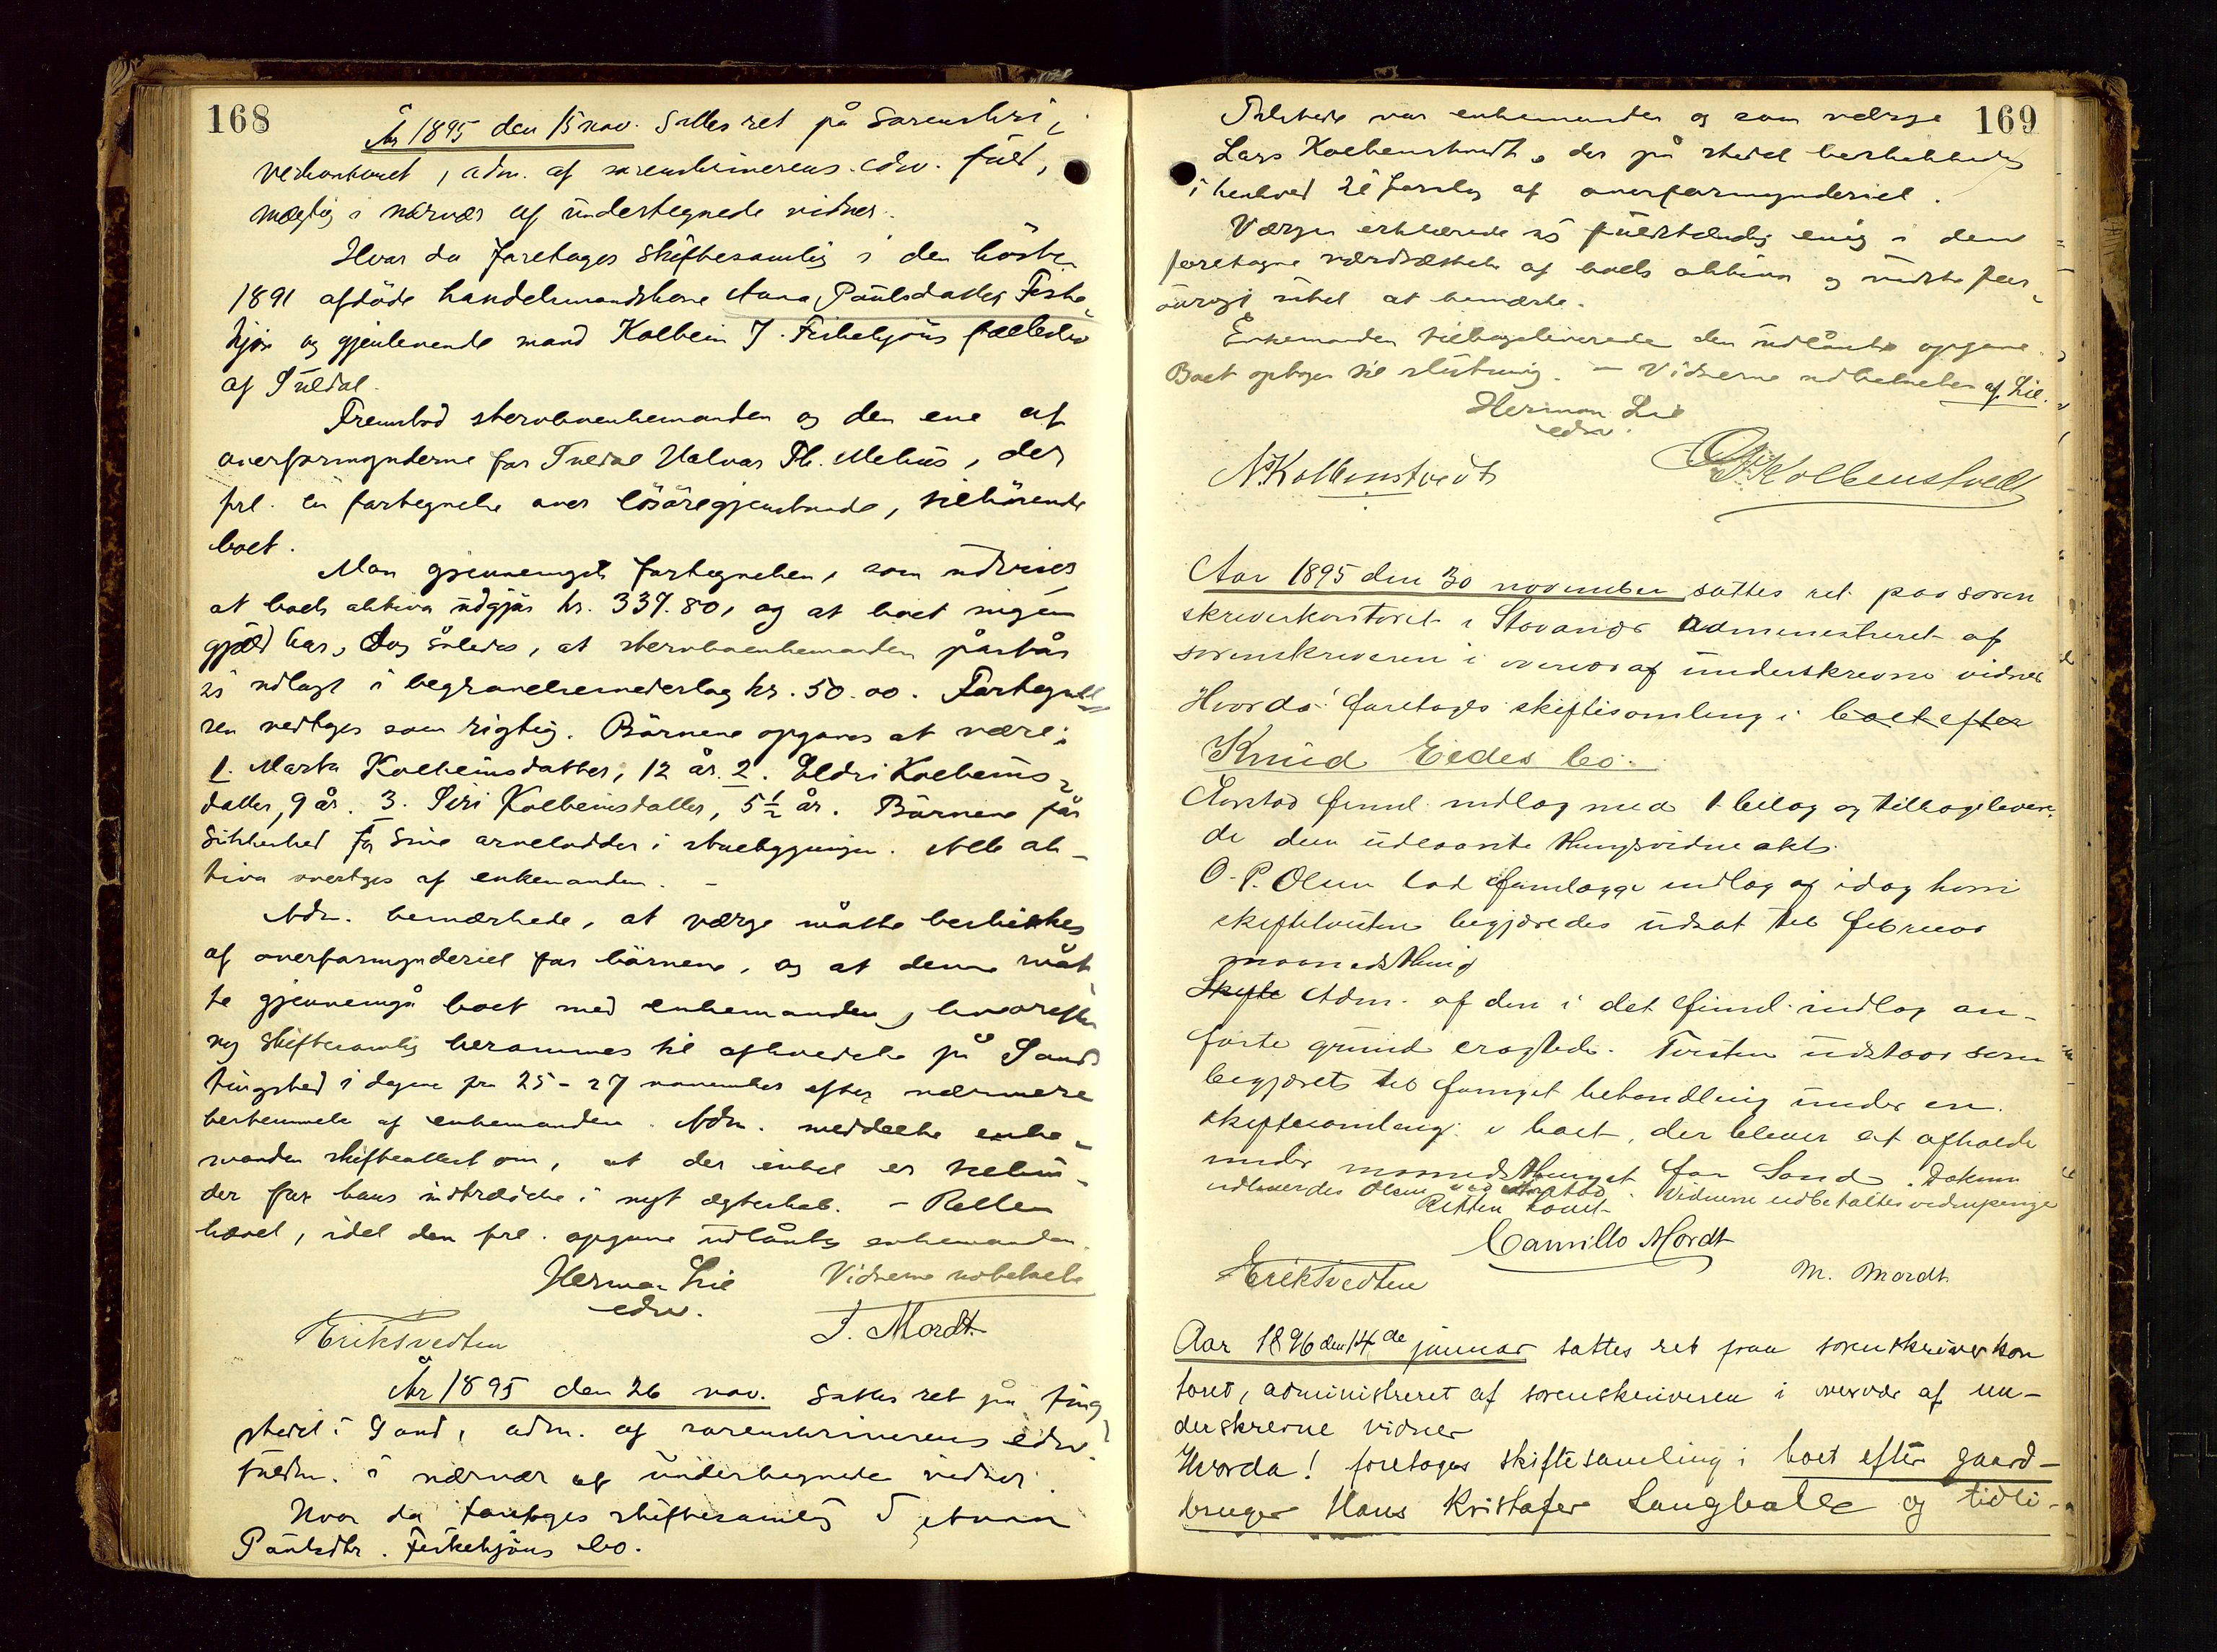 168
År 1895 den 15 nov. sattes ret på sorenskri-
verkontoret, adm. af sorenskriverens edsv. fuld,
mægtig i nærvær af undertegnede vidner.
Hvor da foretages skiftesamling i den hösten
1891 afdöde handelsmandskone Anna Paulsdatter Fiske
kjön og gjenlevende mand Kolbein J. Fiskekjöns fællesbo
af Suldal.
Fremstod sterboenkemanden og den ene af
overformynderne for Suldal Halvor Th. Mehus, der
frl. en fortegnelse over lösöregjenstande, tilhörende
boet.
Man gjennemgik fortegnelsen, som udviser
at boets aktiva udgjör kr. 337.80, og at boet ingen
gjæld har, dog således, at sterboenkemanden påstår
sig udlagt i begravelsesvederlag kr. 50.00. Fortegnel
sen vedtages som rigtig. Börnene opgaves at være:
1. Marta Kolbeinsdatter, 12 år. 2. Eldri Kolbeins-
datter, 9 år. 3. Siri Kolbeinsdatter, 5½ år. Börnene får
sikkerhed for sine arvelodder i stuebygningen. Alle ak-
tiva overtages af enkemanden. –
Adm. bemærkede, at værge måtte beskikkes
af overformynderiet for börnene, og at denne måt
te gjennemgå boet med enkemanden, hvorefter
ny skiftesamling berammes til afholdelse på Sands
tingsted i dagene fra 25 - 27 november efter nærmere
bestemmelse af enkemanden. Adm. meddelte enke-
manden skifteattest om, at der intet er til hin-
der for hans indtrædelse i nyt ægteskab. – Retten
hævet, idet den frl. opgave udlåntes enkemanden.
Herman Lie Vidnerne udbetalte
edsv.
Eriksvedten T. Mordt
År 1895 den 26 nov. sattes ret på ting
stedet i Sand, adm. af sorenskriverens edsv.
fuldm. i nærvær af undertegnede vidner.
Hvor da foretages skiftesamling i Anna
Paulsdtr. Fiskekjöns bo.
169
Tilstede var enkemanden og som værge
Lars Kolbenstvedt, der på stedet beskikkedes
i henhold til forslag af overformynderiet.
Værgen erklærede sig fuldstændig enig i den
foretagne værdsættelse af boets aktiva og vidste for
övrigt intet at bemærke.
Enkemanden tilbageleverede den udlånte opgave.
Boet optages til slutning. – Vidnerne udbetaltes af Lie.
Herman Lie
edsv.
N. Kolbenstvedt Kolbenstvedt
Aar 1895 den 30 november sattes ret paa soren
skriverkontoret i Stavanger administreret af
sorenskriveren i overvær af underskrevne vidner
Hvorda! foretages skiftesamling i boet efter
Knud Eides bo.
Aarstad freml. indlæg med 1 bilag og tilbagelevere-
de den udlaante thingsvidneakt.
O. P. Olsen lod fremlægge indlæg af idag hvori
skiftetvisten begjæredes udsat til februar
maanedsthing
Skifte Adm. af den i det freml. indlæg an-
førte grund eragtede. Tvisten udstaar som
begjæret til fornyet behandling under en
skiftesamling i boet, der bliver at afholde
under maanedsthinget for Sand. Dokum
udlaanedes Olsen ved Aarstad. Vidnerne udbetaltes vidnepenge
Retten hævet
Camillo Mordt
Eriksvedten M. Mordt
Aar 1896 den 14de januar sattes ret paa sorenskriverkon
toret, administreret af sorenskriveren i overvær af un-
derskrevne vidner
Hvorda! foretages skiftesamling i boet efter gaard-
bruger Hans Kristofer Langballe og tidli-